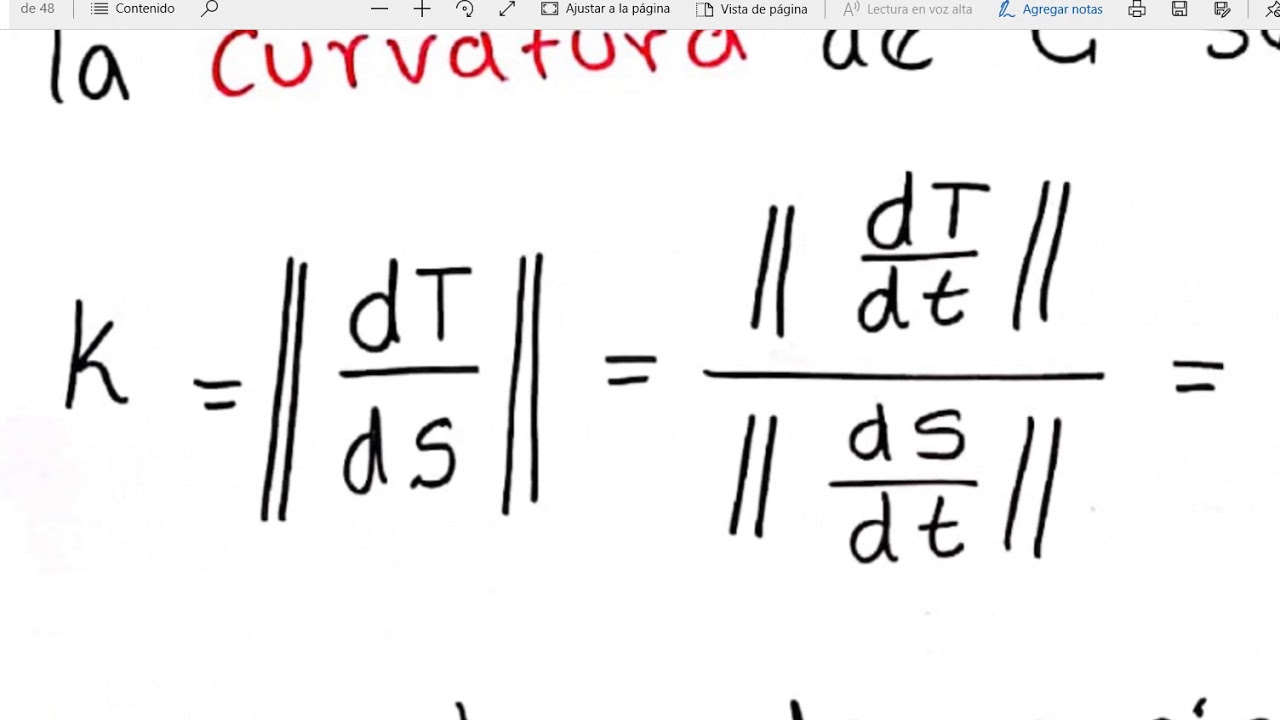 de 48 Contenido Ajustar a la página Vista de página Lectura en voz alta Agregar notas
la curvatura de
K = || dT/ds || = || dT/dt || / || ds/dt || =